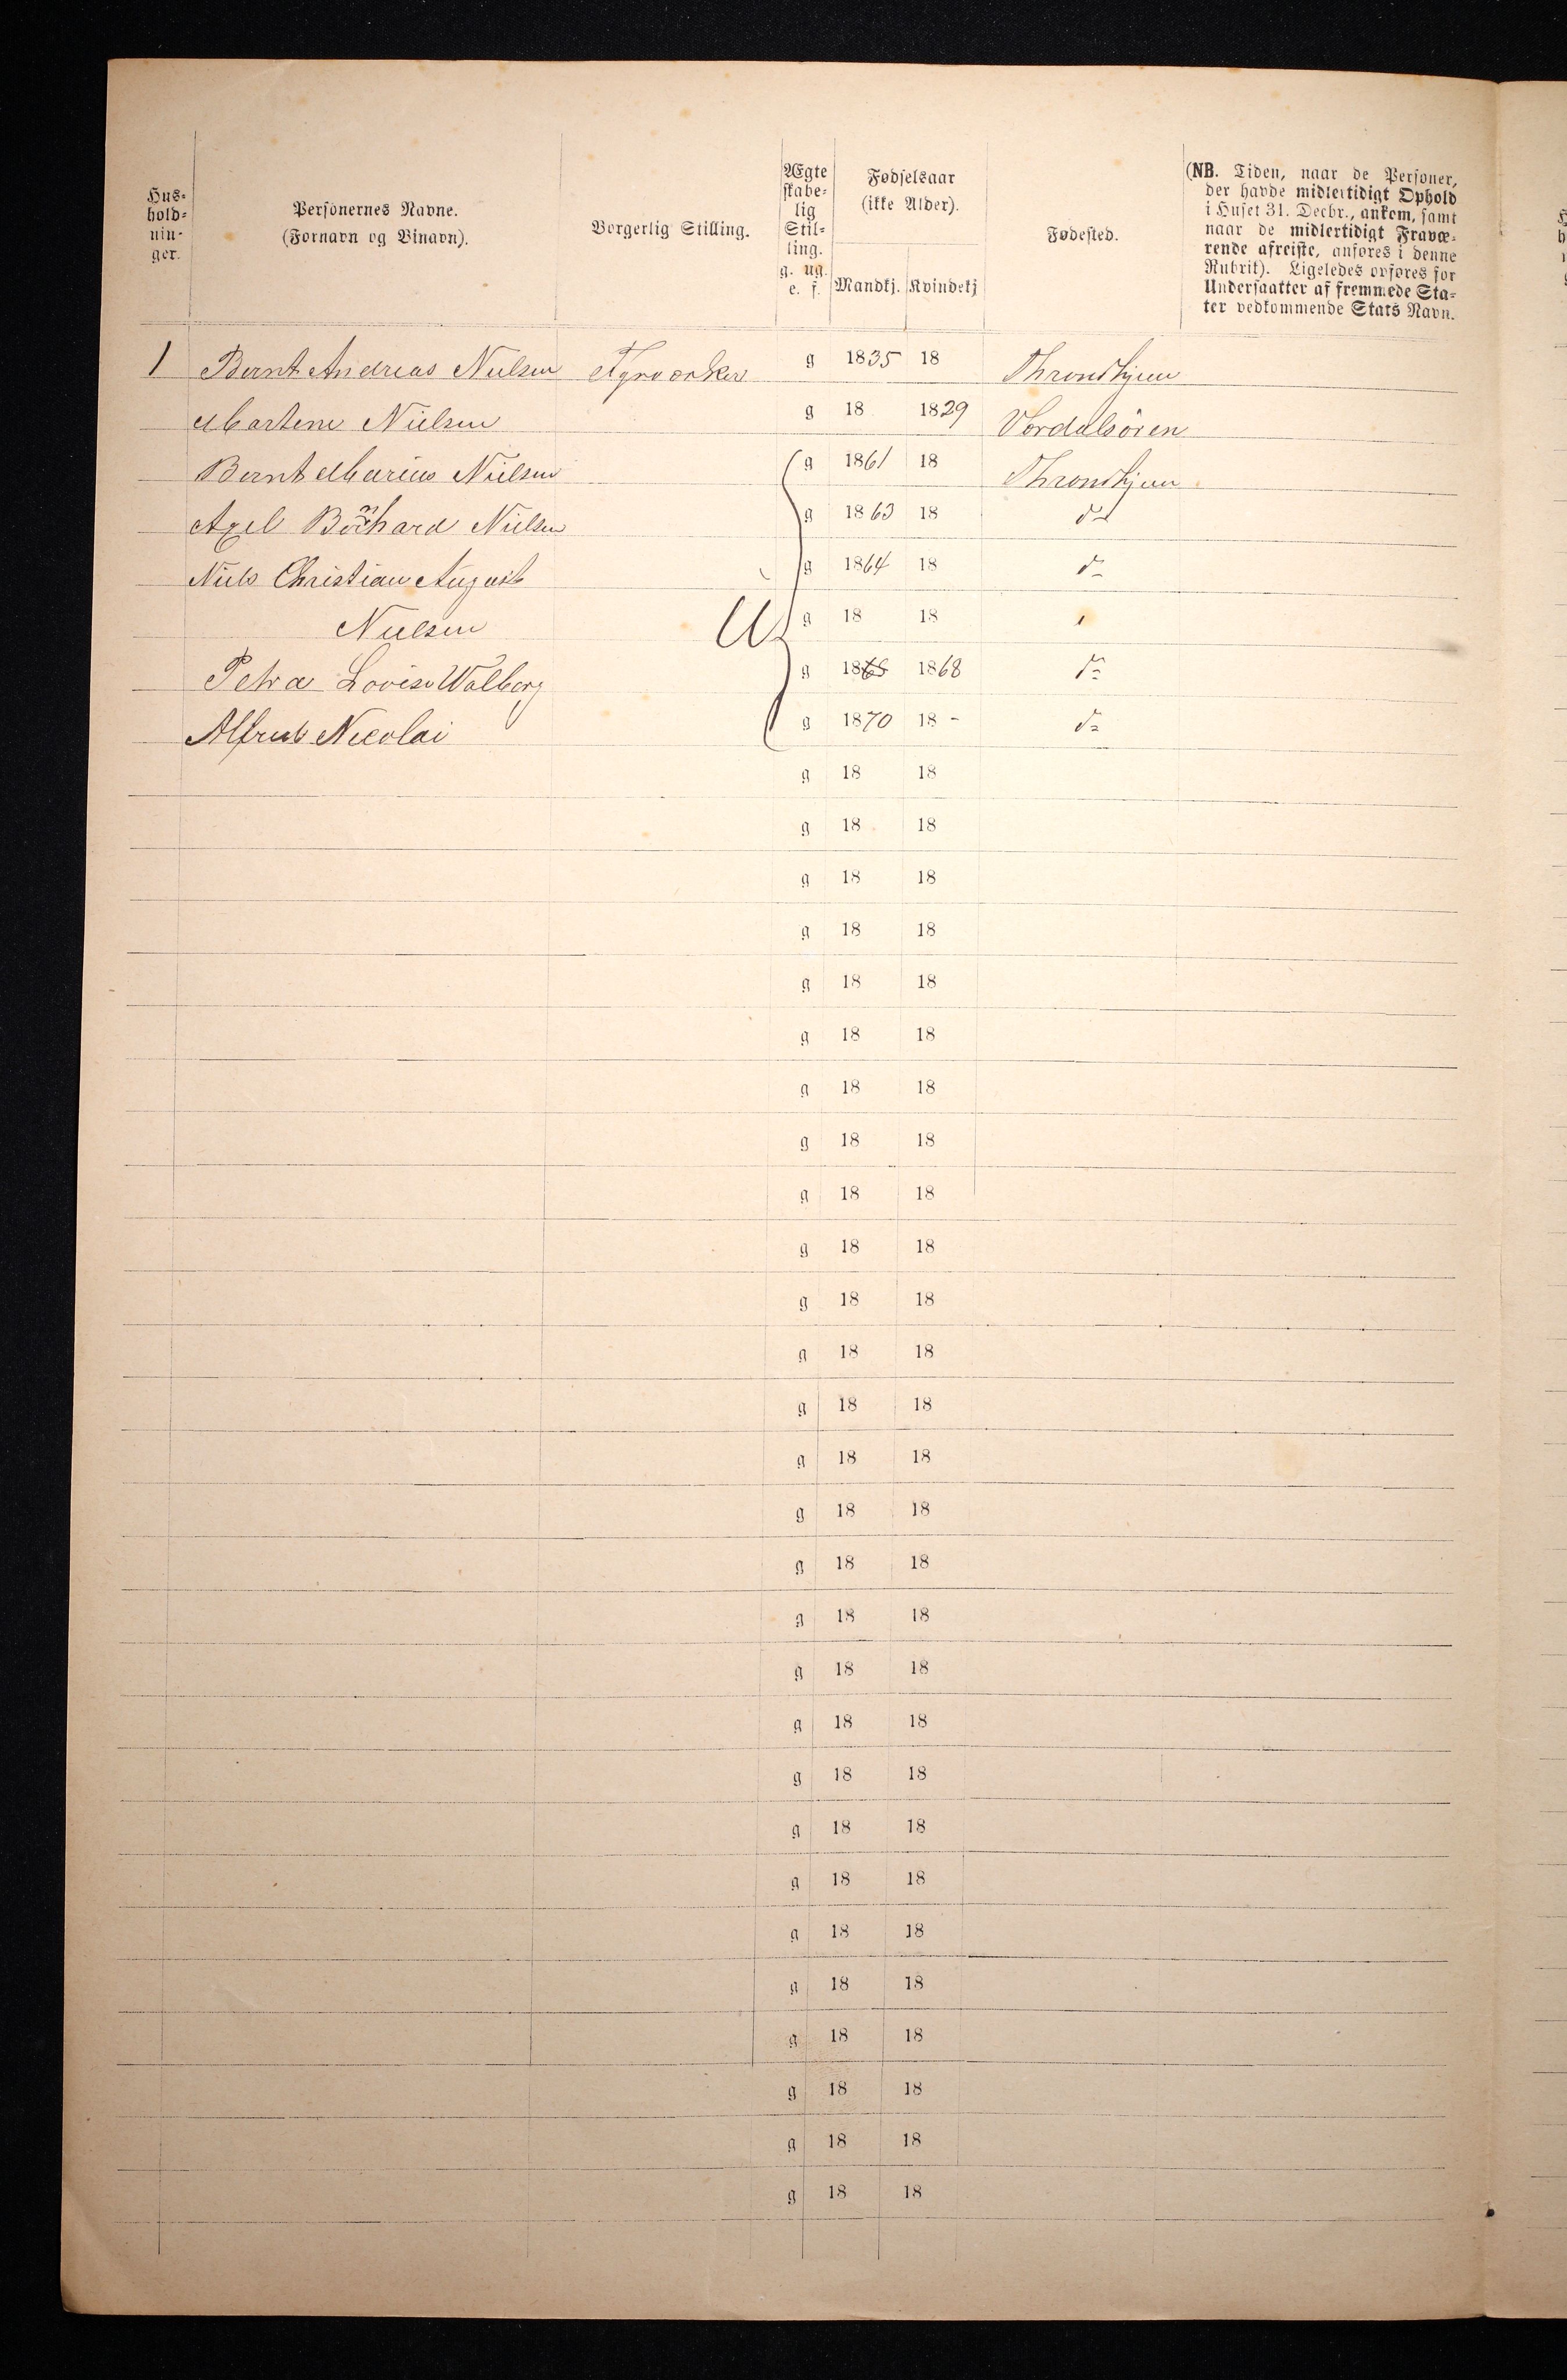 Hus-
hold-
nin-
ger.
Personernes Navne.
(Fornavn og Binavn).
Borgerlig Stilling.
Ægte
skabe-
lig
Stil-
ling.
g. ug.
e. f.
Fødselsaar
(ikke Alder).
Mandkj. Kvindekj
Fødested.
(NB. Tiden, naar de Personer,
der havde midlertidigt Ophold
i Huset 31. Decbr., ankom, samt
naar de midlertidigt Fravæ-
rende afreiste, anføres i denne
Rubrik). Ligeledes opføres for
Undersaatter af fremmede Sta-
ter vedkommende Stats Navn.
1 Bernt Andreas Nielsen g 1835 18 Throndhjem
Martene Nielsen g 18 1829 Verdalsören
Bernt Marius Nielsen g 1861 18 Throndhjem
Axel Nielsen g 1863 18 do
Niels Christian August g 1864 18 do
Nielsen U g 18 18 "
Petra Lovise Walborg g 1865 1868 do
Alfred Nicolai g 1870 18 - do
g 18 18
g 18 18
g 18 18
g 18 18
g 18 18
g 18 18
g 18 18
g 18 18
g 18 18
g 18 18
g 18 18
g 18 18
g 18 18
g 18 18
g 18 18
g 18 18
g 18 18
g 18 18
g 18 18
g 18 18
g 18 18
g 18 18
g 18 18
g 18 18
g 18 18
g 18 18
g 18 18
g 18 18